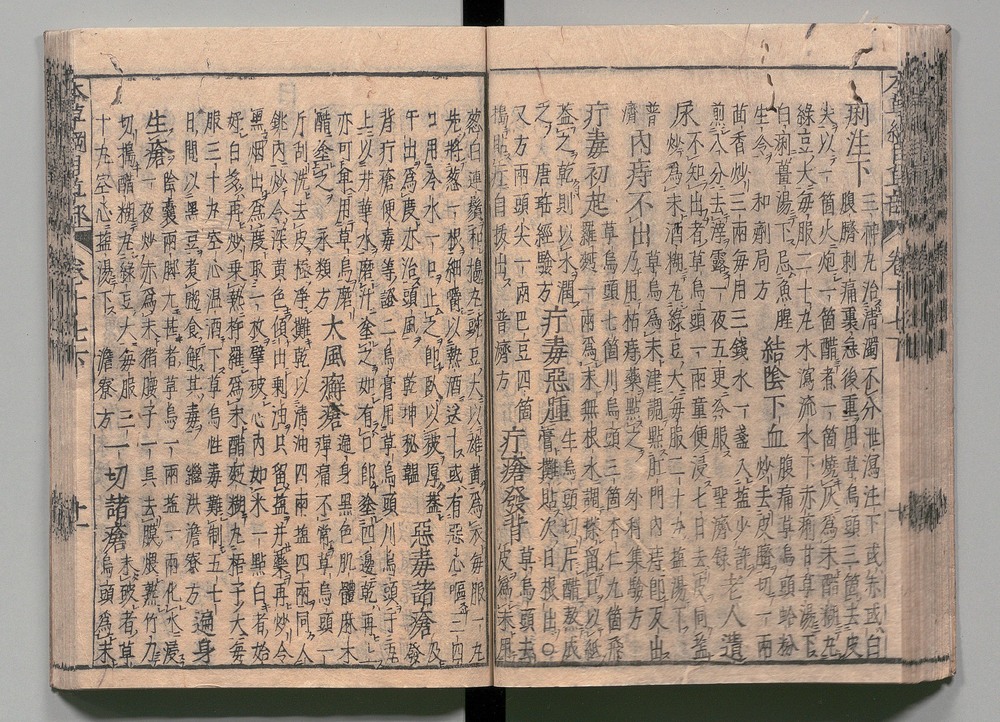 痢注下 三神丸治清濁不分泄瀉注下或赤或白
腹臍刺痛裏急後重用草烏頭三箇去皮
尖以一箇火炮一箇醋煮一箇燒灰為末醋糊丸
綠豆大每服二十丸水瀉流水下赤痢甘草湯下
白痢薑湯下忌魚腥 結陰下血 腹痛草烏頭蛤粉
生冷 和劑局方 炒去皮臍切一兩
茴香炒三兩每用三錢水一盞入鹽少許
煎八分去滓露一夜五更冷服 聖濟錄 老人遺
尿 不知出者草烏頭一兩童便浸七日去皮同鹽
炒為末酒糊丸綠豆大每服二十丸鹽湯下
普濟 內痔不出 草烏為末津調點肛門內痔即反出
乃用枯痔藥點之 外科集驗方
疔毒初起 草烏頭七箇川烏頭三箇杏仁九箇飛
羅麪一兩為末無根水調搽留口以紙
蓋之乾則以水潤 疔毒惡腫 生烏頭切片醋熬成
之 唐瑤經驗方 膏攤貼次日根出○
又方兩頭尖一兩巴豆四箇 疔瘡發背 草烏頭去
搗貼疔自拔出 普濟方 皮為末用
葱白連鬚和搗丸豌豆大以雄黃為衣每服一丸
先將葱一根細嚼以熱酒送下或有惡心嘔三四
口用冷水一口止之即臥以被厚蓋 惡毒諸瘡 發
午出為度亦治頭風 乾坤秘韞 及
背疔瘡便毒等證二烏膏用草烏頭川烏頭于瓦
上以井華水磨汁塗之如有口即塗四邊乾再
亦可單用草烏磨 大風癬瘡 遍身黑色肌體麻木
醋塗之 永類方 痺痛不常草烏頭一
斤刮洗去皮極淨攤乾以清油四兩鹽四兩同入
銚內炒令深黃色傾出剩油只留鹽并藥再炒令
黑烟出為度取一枚擘破心內如米一點白者始
好白多再炒乘熱杵羅為末醋麪糊丸梧子大每
服三十丸空心溫酒下草烏性毒難制五七
日間以黑豆煮粥食解其毒 繼洪澹寮方 遍身
生瘡 陰囊兩脚尤甚者草烏一兩鹽一兩化水浸
一夜炒赤為末猪腰子一具去膜煨熟竹刀
切搗醋糊丸綠豆大每服三 一切諸瘡 未破者草
十丸空心鹽湯下 澹寮方 烏頭為末